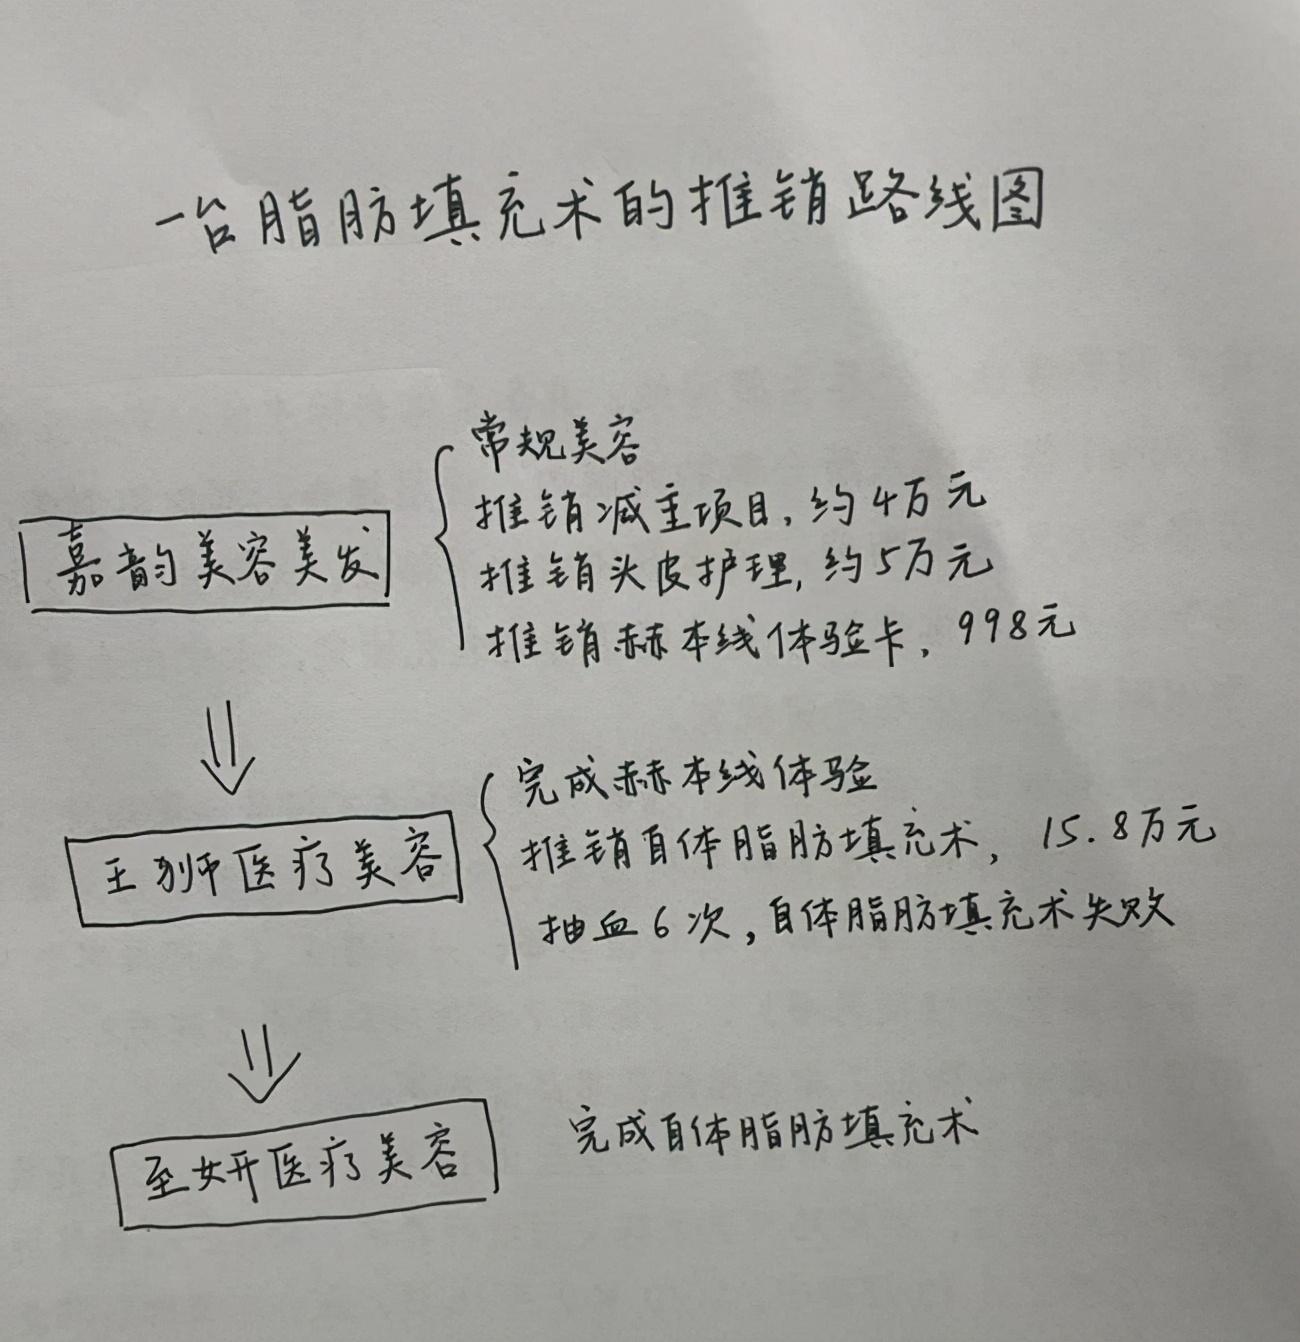 一台脂肪填充术的推销路线图
常规美容
推销减重项目，约4万元
嘉韵美容美发
推销头皮护理，约5万元
推销赫本线体验卡，998元
完成赫本线体验
推销自体脂肪填充术，15.8万元
王狮医疗美容
抽血6次，自体脂肪填充术失败
完成自体脂肪填充术
至妍医疗美容